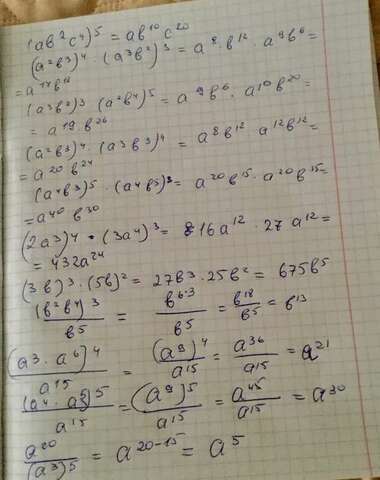 (ab²c⁴)⁵ = ab¹⁰c²⁰
(a²b³)⁴ · (a³b²)³ = a⁸ · b¹² · a⁹b⁶ =
= a¹⁷b¹⁸
(a³b²)³ · (a²b⁴)⁵ = a⁹b⁶ · a¹⁰b²⁰ =
= a¹⁹b²⁶
(a²b³)⁴ · (a³b³)⁴ = a⁸b¹² · a¹²b¹² =
= a²⁰b²⁴
(a⁴b³)⁵ · (a⁴b⁵)³ = a²⁰b¹⁵ · a²⁰b¹⁵ =
= a⁴⁰b³⁰
(2a³)⁴ · (3a⁴)³ = 16a¹² · 27a¹² =
= 432a²⁴
(3b)³ · (5b)² = 27b³ · 25b² = 675b⁵
(b²b⁴)³/b⁵ = b⁶·³/b⁵ = b¹⁸/b⁵ = b¹³
(a³ · a⁶)⁴/a¹⁵ = (a⁹)⁴/a¹⁵ = a³⁶/a¹⁵ = a²¹
(a⁴ · a⁵)⁵/a¹⁵ = (a⁹)⁵/a¹⁵ = a⁴⁵/a¹⁵ = a³⁰
a²⁰/(a³)⁵ = a²⁰⁻¹⁵ = a⁵